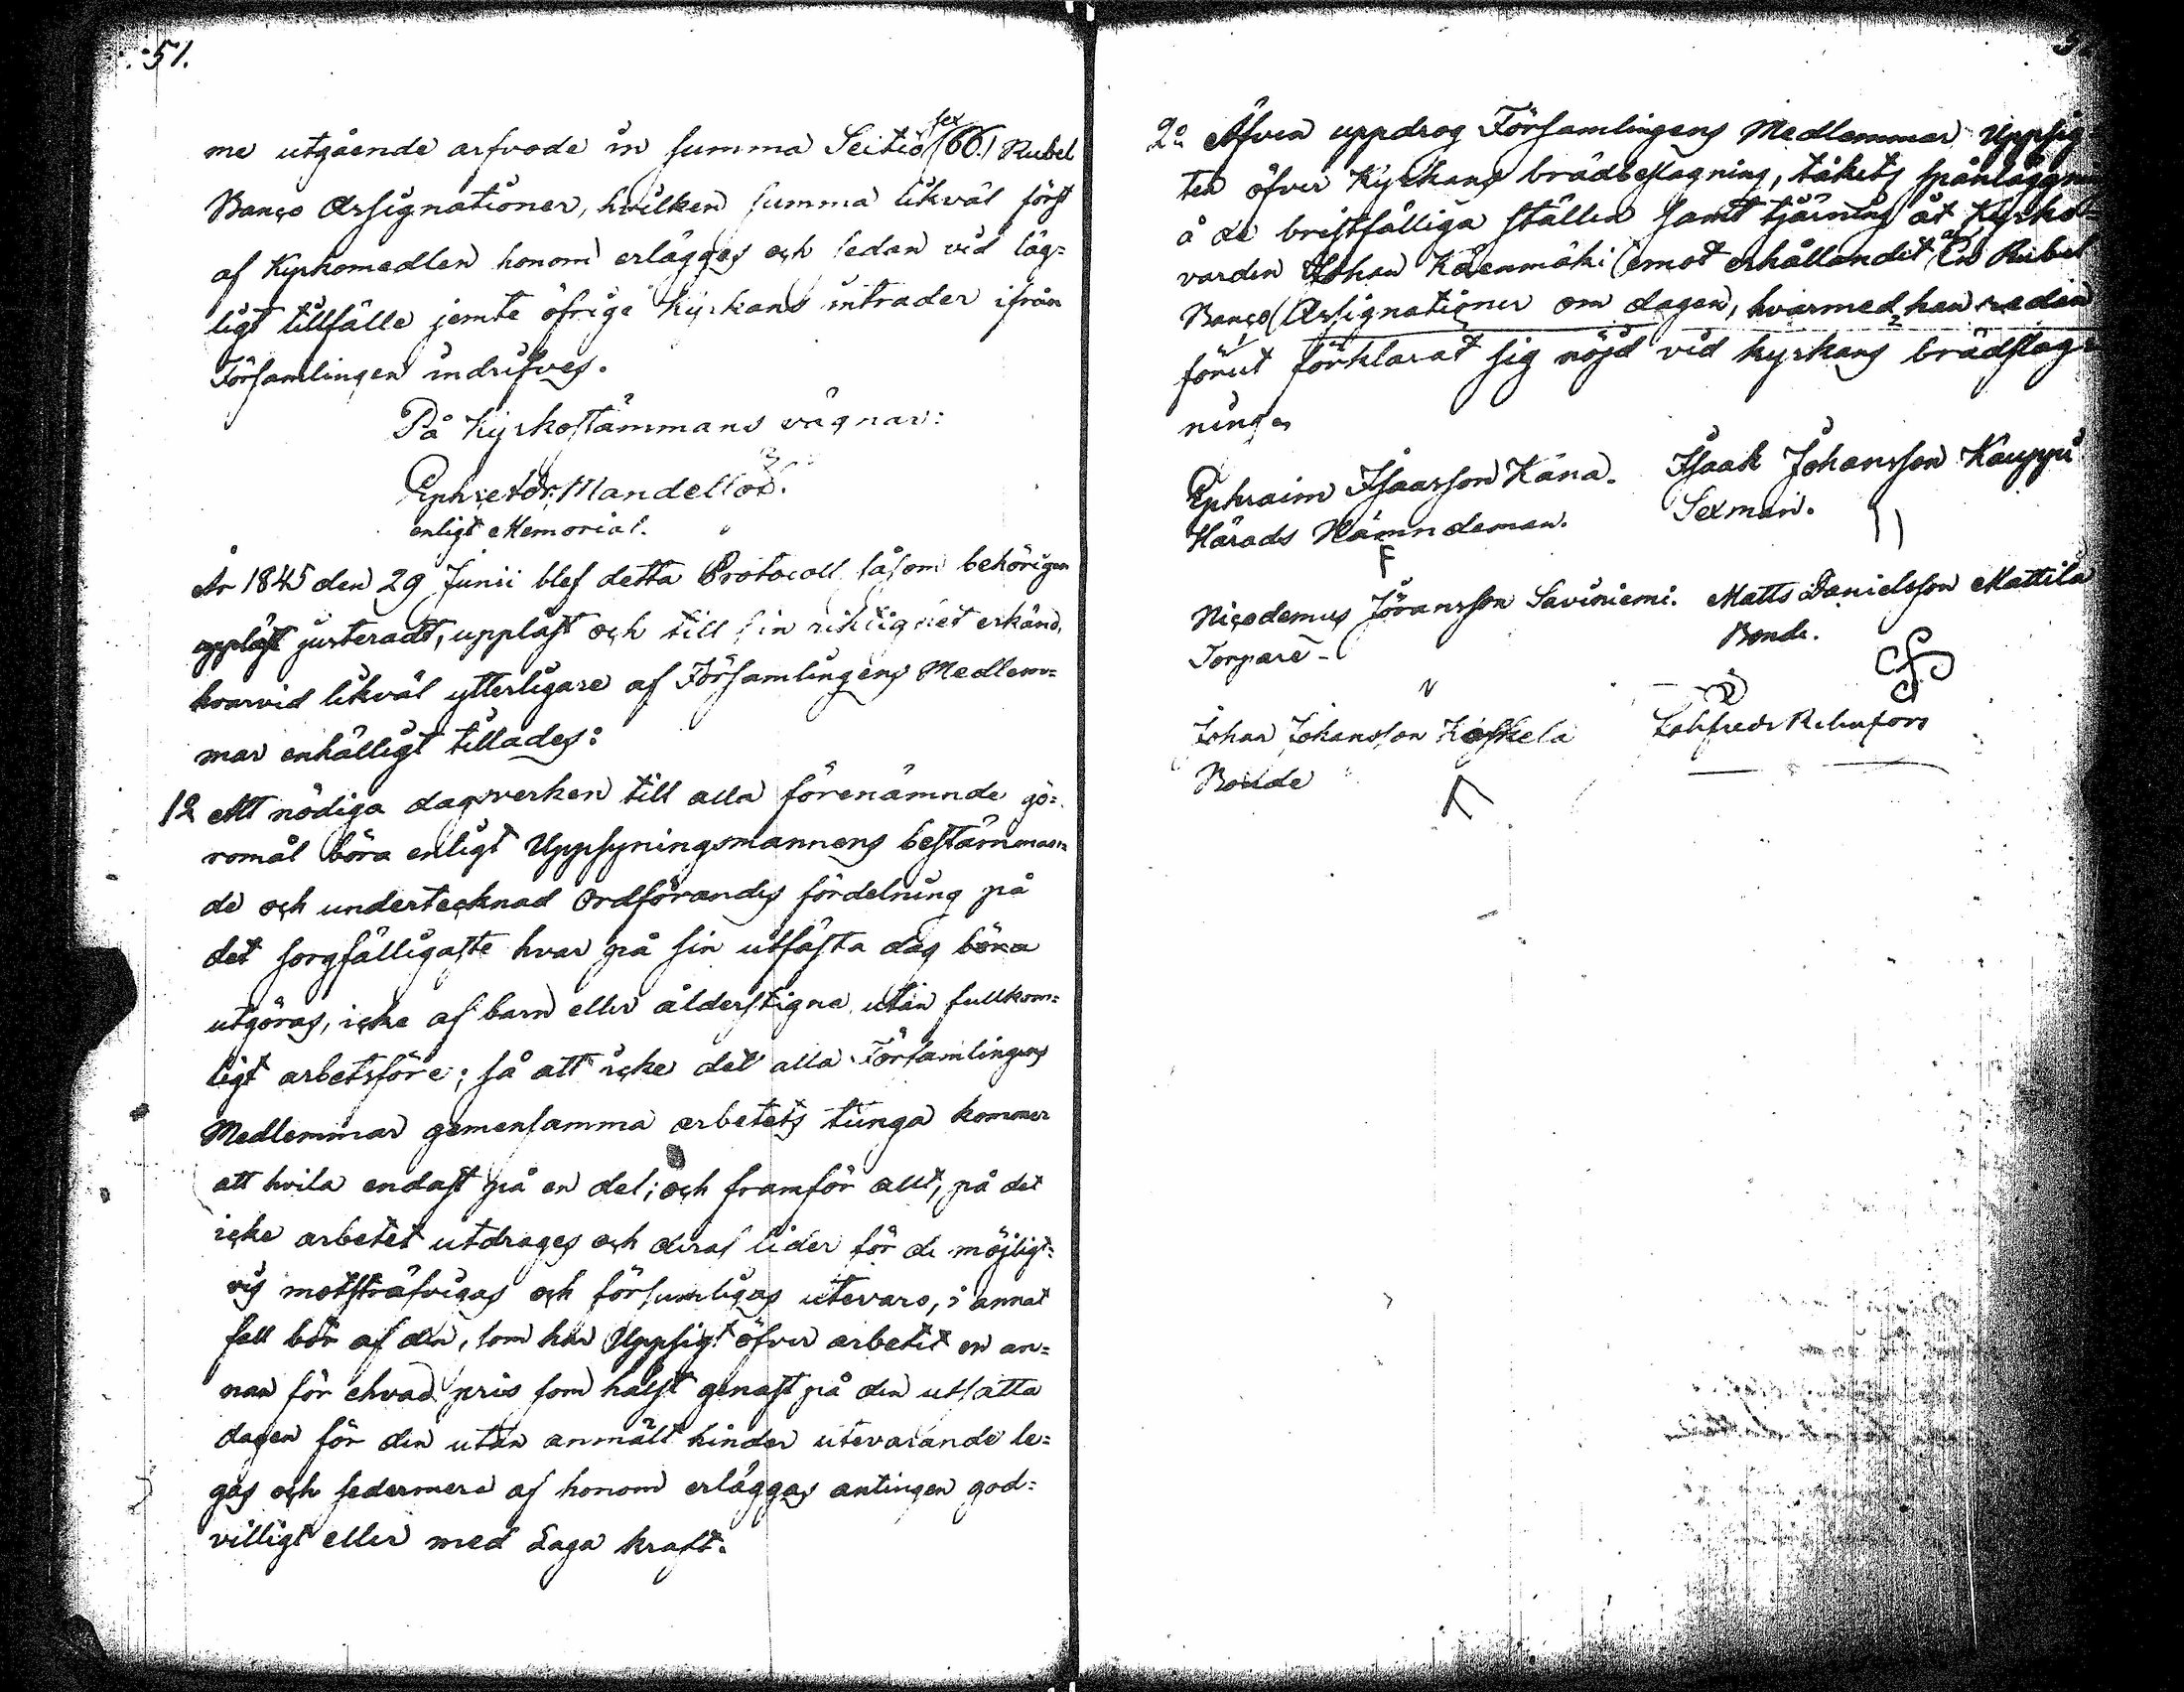 51.
me utgående arfvode in summa Sextio sex (66.) Rubel
Banco Assignationer, hvilken summa likväl först
af Kyrkomedlen honom erlägges och sedan vid läg=
ligt tillfälle jemte öfrige Kyrkans intrader ifrån
Församlingen indrifves.
På Kyrkostämmans vägnar:
Mandellöf.
enligt Memorial.
År 1845 den 29 Junii blef detta Protocoll såsom behörigen
justeradt, uppläst och till sin riktighet erkänd,
hvarvid likväl ytterligare af Församlingens Medlem=
mar enhälligt tillades:
1o Att nödiga dagsverken till alla förenämnde gö=
romål böra enligt Uppsyningsmannens bestämman=
de och undertecknad Ordförandes fördelning på
det sorgfälligaste hvar på sin utfästa dag böra
utgöras, icke af barn eller ålderstigne utan fullkom=
ligt arbetsföre; så att icke det alla Församlingens
Medlemmar gemensamma arbetets tunga kommer
att hvila endast på en del; och framför allt, på det
icke arbetet utdrages och deraf lider för de möjligt=
vis motsträfvigas och försumligas utevaro, i annat
fall bör af den, som har Uppsigt öfver arbetet en an=
nan för ehvad pris som hälst genast på den utsatta
dagen för den utan anmält hinder utevarande le=
gas och sedermera af honom erläggas antingen god=
villigt eller med Laga kraft.
2o Äfven uppdrog Församlingens Medlemmar Uppsig=
ten öfver Kyrkans brädbeslagning, takets spånläggning
å de bristfälliga ställen samt tjärning åt Kyrko=
varden Johan Käenmäki emot erhållandet af En Rubel
Banco Assignationer om dagen, hvarmed han redan
förut förklarat sig nöjd vid kyrkans brädslag=
ning.
Ephraim Isaacsson Kana. Isaak Johansson Kauppi
Härads Nämndeman. Sexman.
Nicodemus Jöransson Saviniemi. Matts Danielsson Mattila
Torpare Bonde.
Johan Johansson Koskela
Bonde